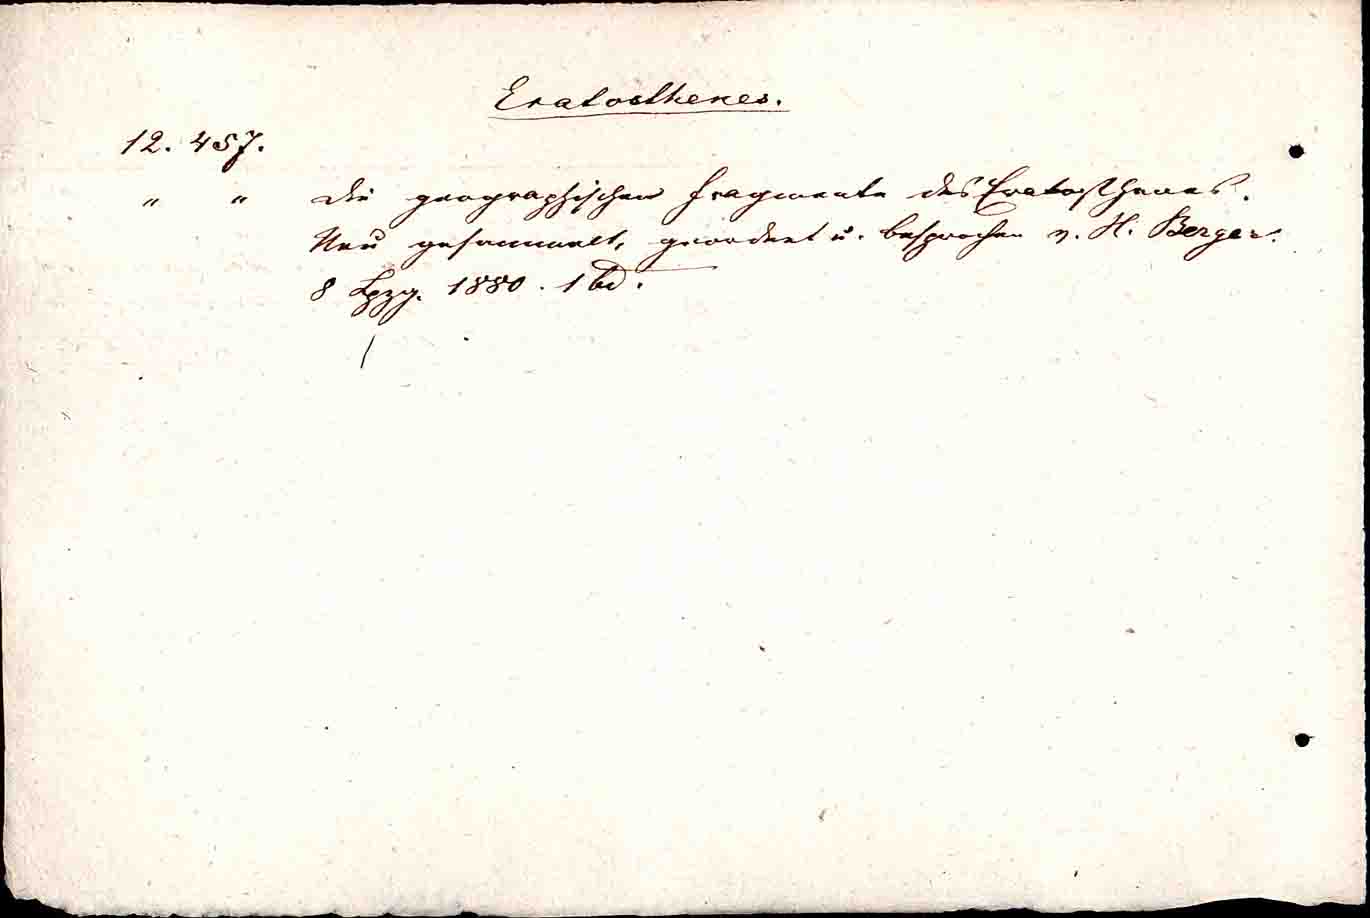 Eratosthenes.
12. 457.
" " Die geographischen Fragmente des Eratosthenes.
Neu gesammelt, geordnet u. besprochen v. H. Berger.
8 Lpzg. 1880. 1 bd.